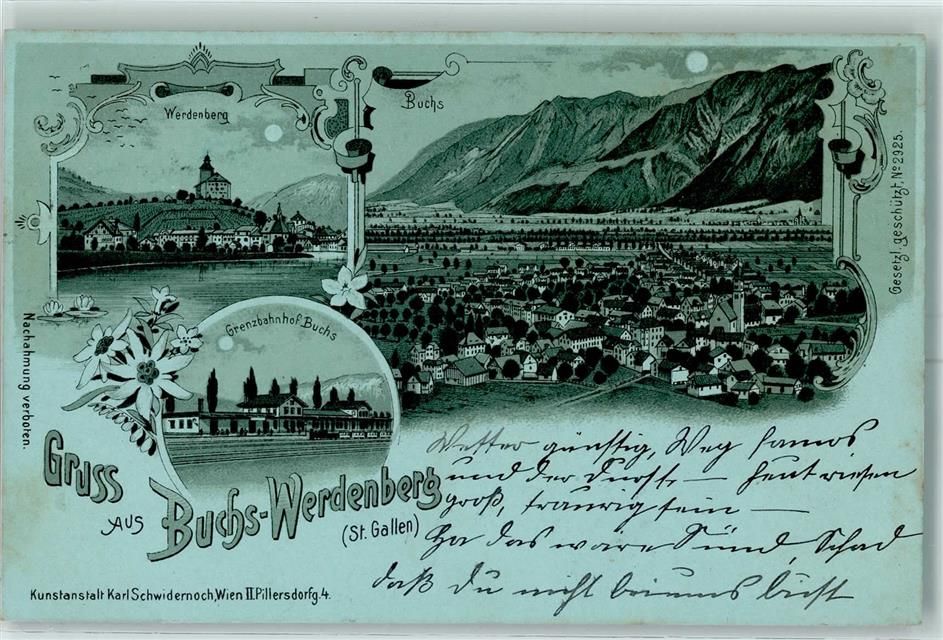 Werdenberg
Buchs
Gesetzl. geschützt, No 2925.
Grenzbahnhof Buchs
Nachahmung verboten.
Gruss
aus
Buchs-Werdenberg
(St. Gallen)
Wetter günstig, Weg famos
und der Durst, — heut riesen
groß, traurig sein —
Ha das wäre Sünd, Schad
daß Du nicht bist
Kunstanstalt Karl Schwidernoch, Wien II. Pillersdorfg. 4.